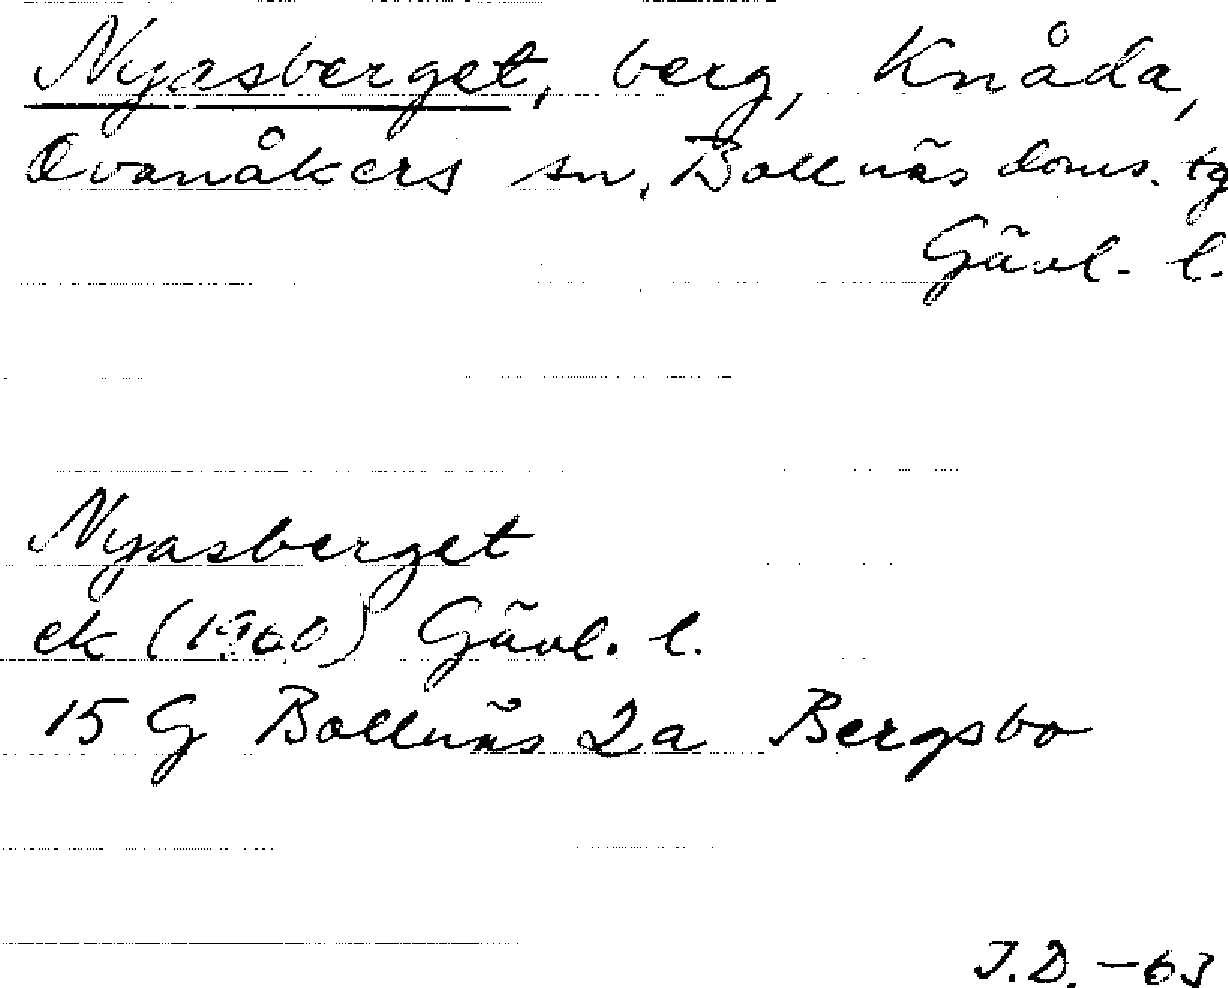 Nyasberget, berg, Knåda,
Ovanåkers sn, Bollnäs doms. tg
Gävl. l.
Nyasberget
ek (1960) Gävl. l.
15 G Bollnäs 2a Bergsbo
J.D. -63